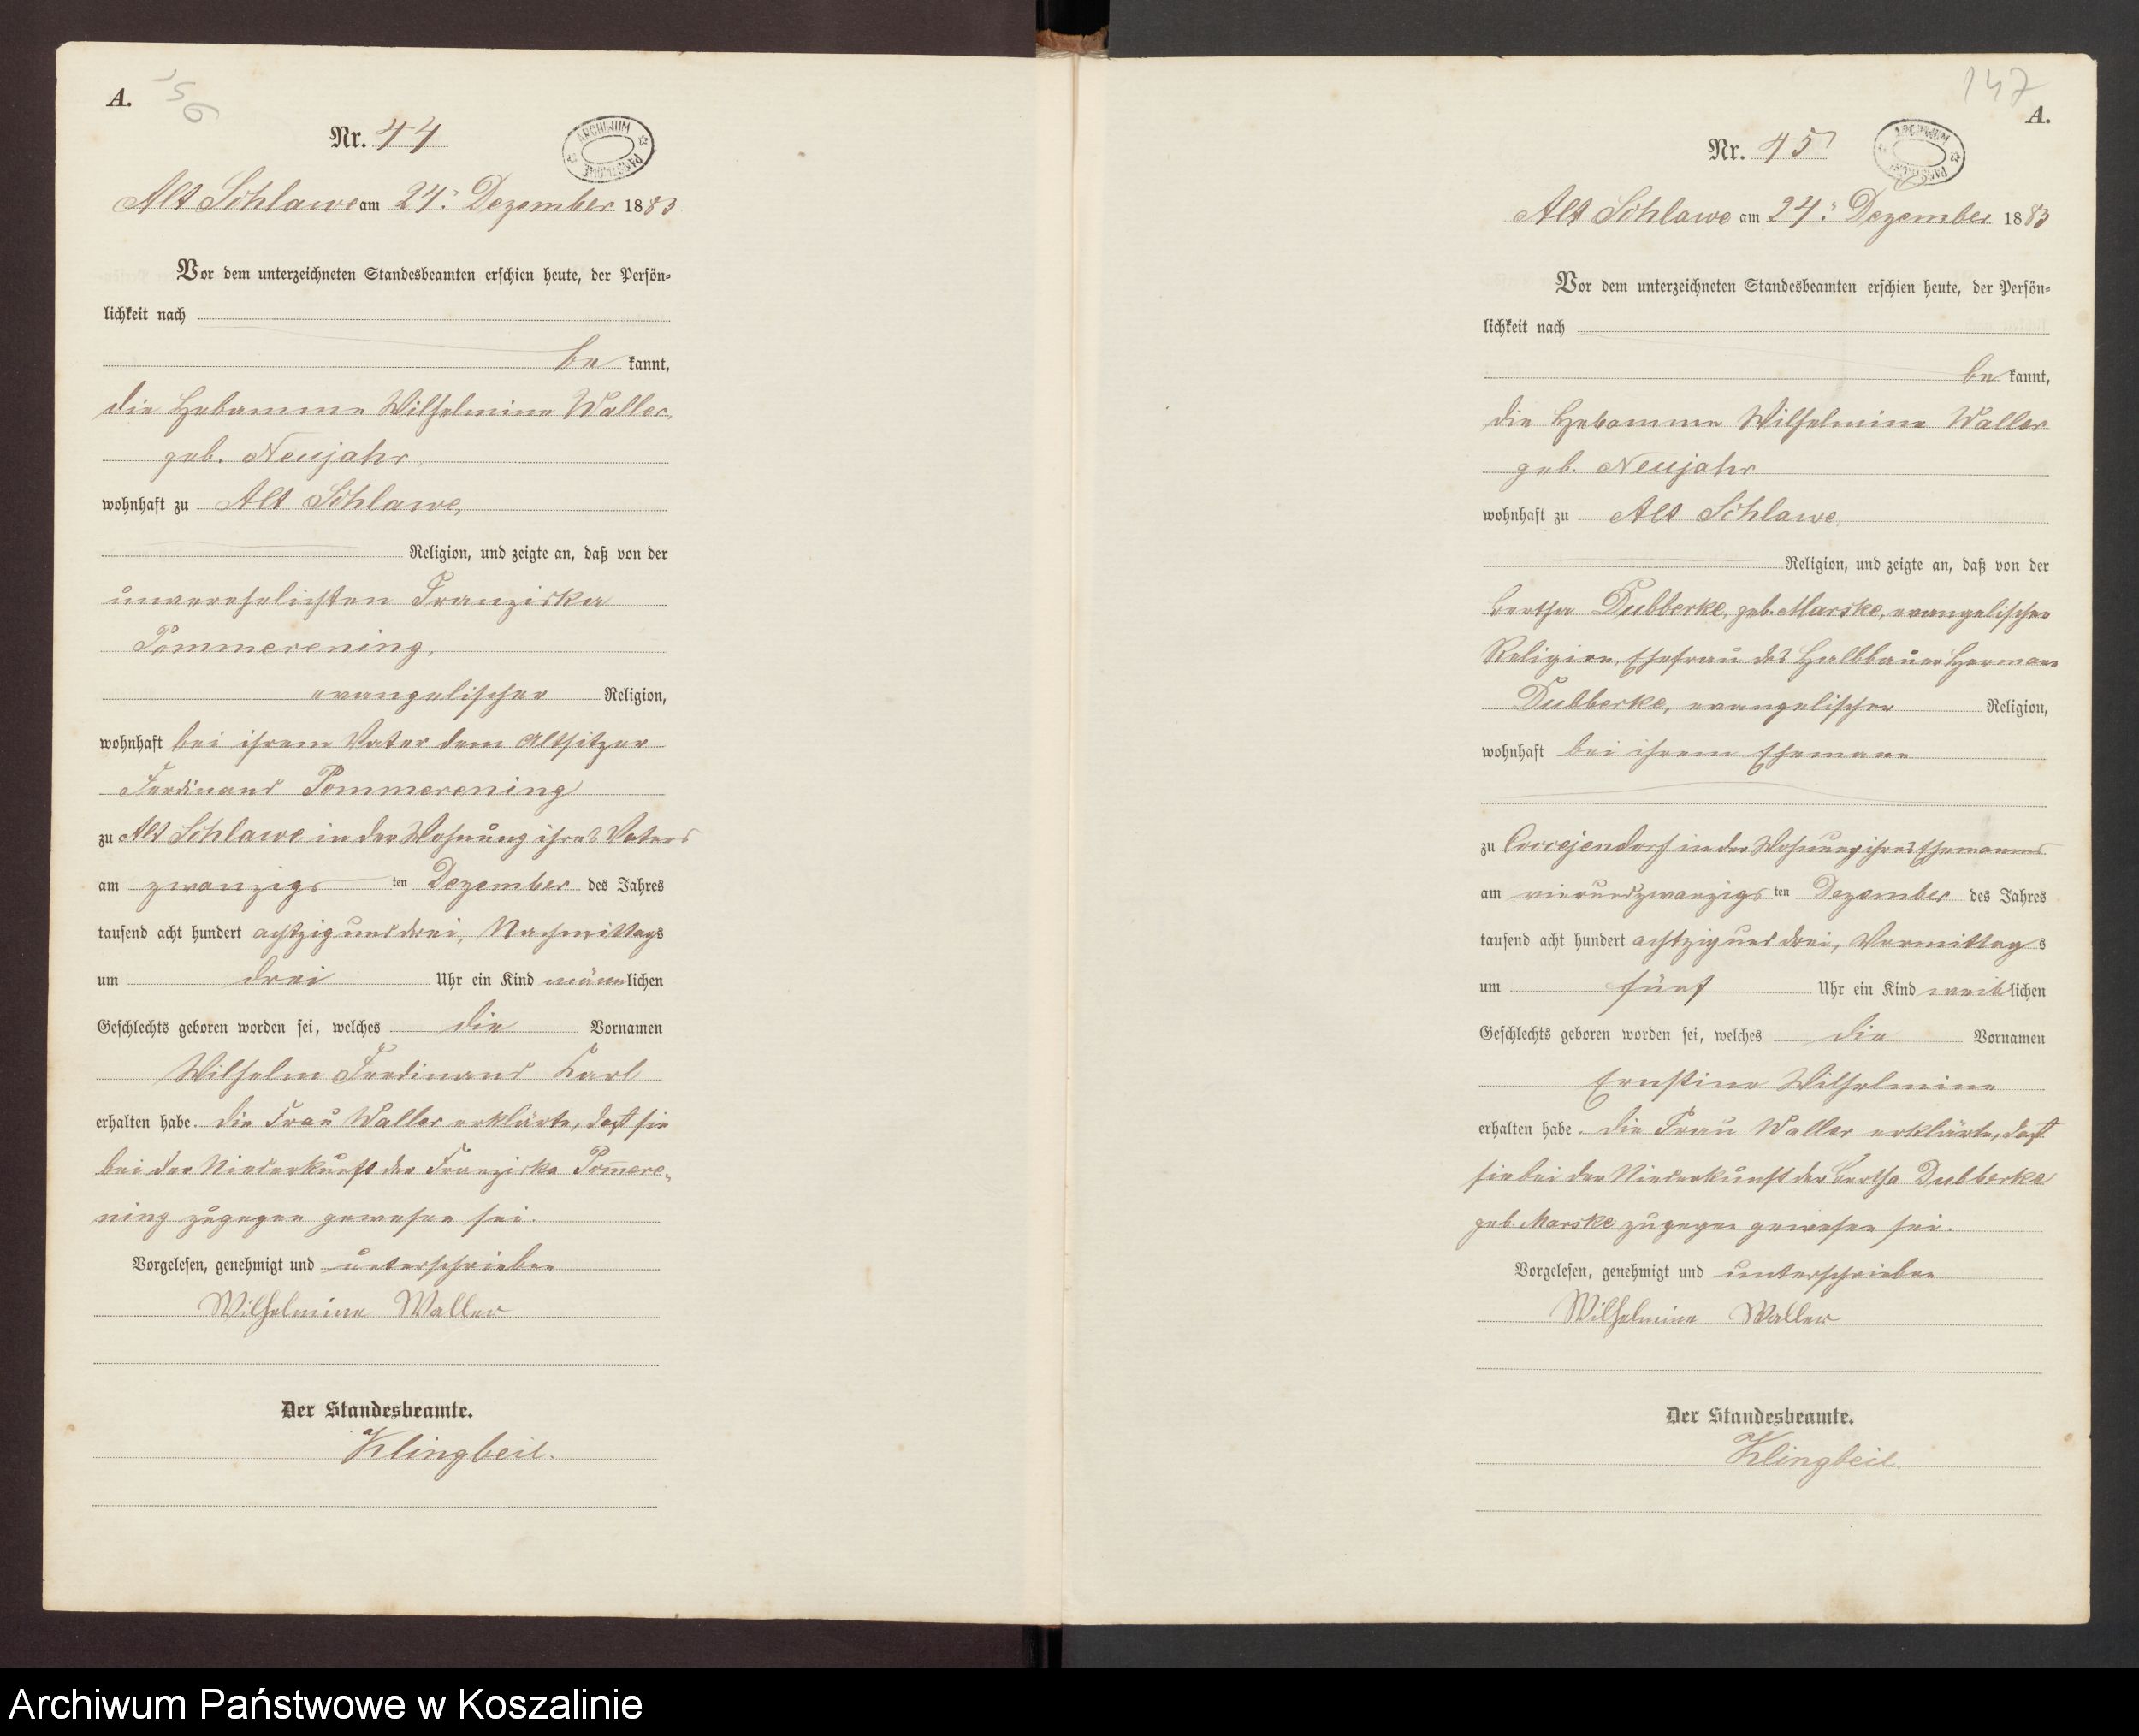 A.
Nr. 44
ARCHIWUM PAŃSTWOWE
Alt Schlawe am 24. Dezember 1883
Vor dem unterzeichneten Standesbeamten erschien heute, der Persön-
lichkeit nach
be kannt,
die Hebamme Wilhelmine Waller,
geb. Neujahr,
wohnhaft zu Alt Schlawe,
Religion, und zeigte an, daß von der
unverehelichten Franziska
Pommerening,
evangelischer Religion,
wohnhaft bei ihrem Vater dem Altsitzer
Ferdinand Pommerening
zu Alt Schlawe in der Wohnung ihres Vaters
am zwanzigsten Dezember des Jahres
tausend acht hundert achtzig und drei, Nachmittags
um drei Uhr ein Kind männlichen
Geschlechts geboren worden sei, welches die Vornamen
Wilhelm Ferdinand Karl
erhalten habe. Die Frau Waller erklärte, daß sie
bei der Niederkunft der Franziska Pom̄ere-
ning zugegen gewesen sei.
Vorgelesen, genehmigt und unterschrieben
Wilhelmine Waller
Der Standesbeamte.
Klingbeil.
147
A.
Nr. 45
ARCHIWUM PAŃSTWOWE
Alt Schlawe am 24. Dezember 1883
Vor dem unterzeichneten Standesbeamten erschien heute, der Persön-
lichkeit nach
be kannt,
die Hebamme Wilhelmine Waller
geb. Neujahr
wohnhaft zu Alt Schlawe
Religion, und zeigte an, daß von der
Bertha Dubberke, geb. Marske, evangelischer
Religion, Ehefrau des Halbbauer Hermann
Dubberke, evangelischer Religion,
wohnhaft bei ihrem Ehemann
zu Coccejendorf in der Wohnung ihres Ehemannes
am vierundzwanzigsten Dezember des Jahres
tausend acht hundert achtzig und drei, Vormittags
um fünf Uhr ein Kind weiblichen
Geschlechts geboren worden sei, welches die Vornamen
Ernstine Wilhelmine
erhalten habe. Die Frau Waller erklärte, daß
sie bei der Niederkunft der Bertha Dubberke
geb. Marske zugegen gewesen sei.
Vorgelesen, genehmigt und unterschrieben
Wilhelmine Waller
Der Standesbeamte.
Klingbeil.
Archiwum Państwowe w Koszalinie